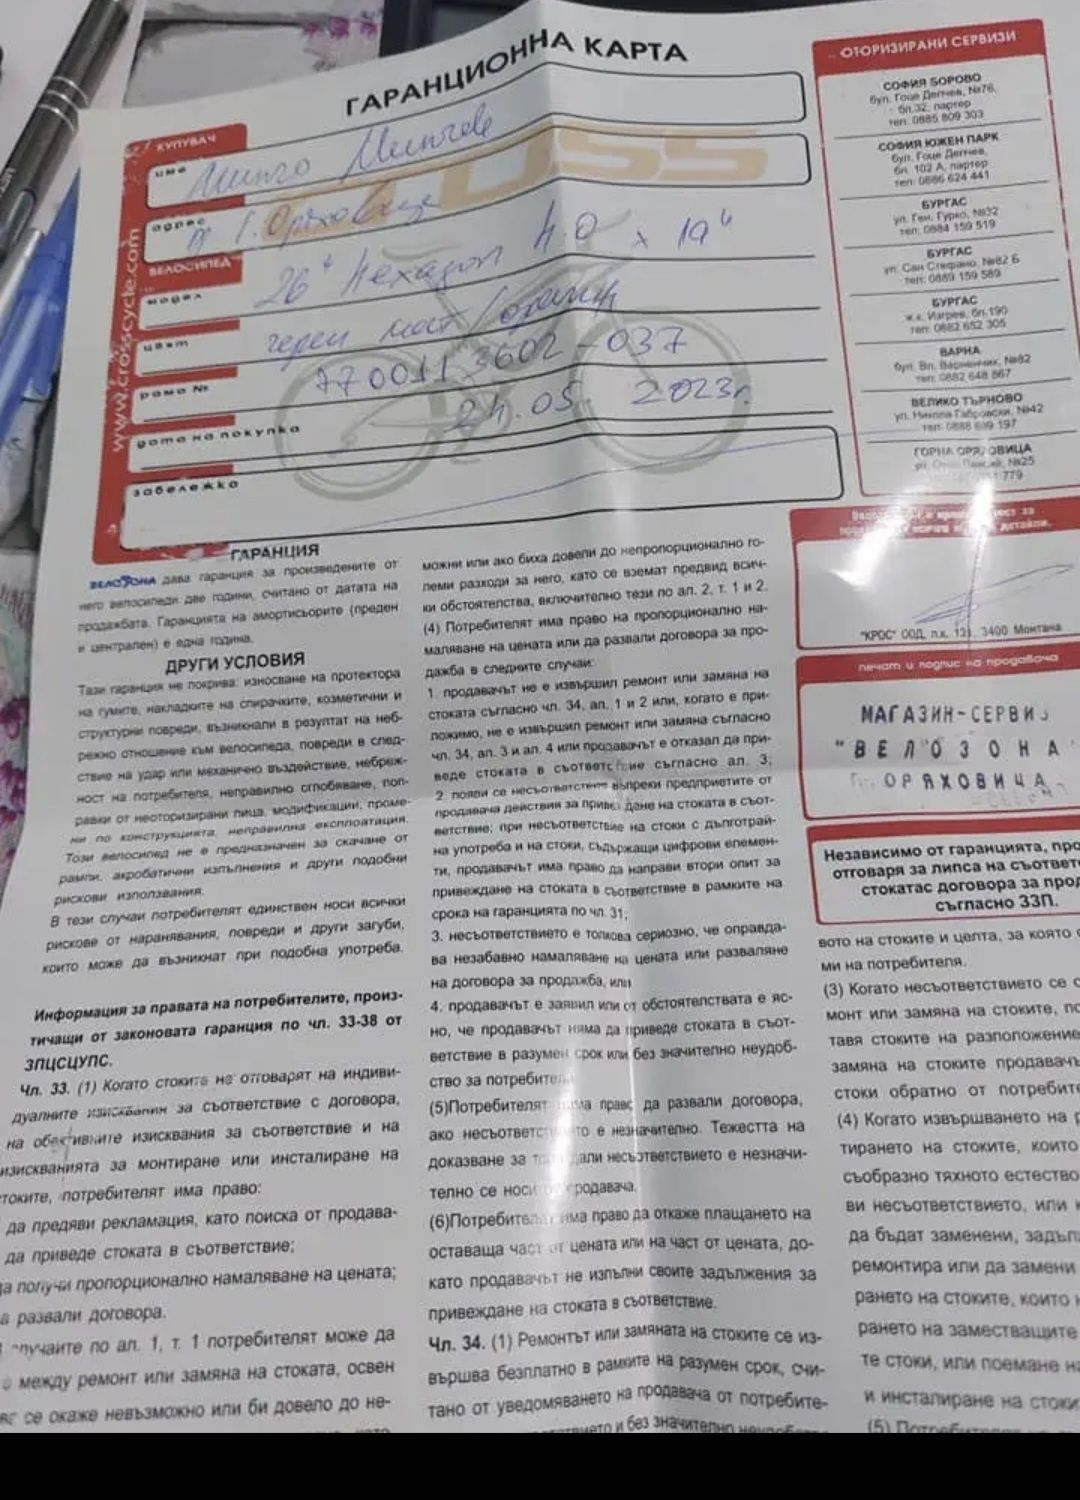 ГАРАНЦИОННА КАРТА
www.crosscycle.com
CROSS
КУПУВАЧ
име
Минчо Минчев
адрес
Г. Оряховица
ВЕЛОСИПЕД
модел
26"
19"
цвят
черен мат/
рама №
7700113602-037
дата на покупка
24.05. 2023г.
забележка
ОТОРИЗИРАНИ СЕРВИЗИ
СОФИЯ БОРОВО
бул. Гоце Делчев, №76,
бл.32, партер
тел: 0885 809 303
СОФИЯ ЮЖЕН ПАРК
бул. Гоце Делчев,
бл. 102 А, партер
тел: 0886 624 441
БУРГАС
ул. Ген. Гурко, №32
тел: 0884 159 519
БУРГАС
ул. Сан Стефано, №82 Б
тел: 0889 159 589
БУРГАС
ж.к. Изгрев, бл.190
тел: 0882 652 305
ВАРНА
бул. Вл. Варненчик, №82
тел: 0882 648 867
ВЕЛИКО ТЪРНОВО
ул. Никола Габровски, №42
тел: 0888 699 197
ГОРНА ОРЯХОВИЦА
№25
779
"КРОС" ООД, п.к. 131, 3400 Монтана
печат и подпис на продавача
МАГАЗИН-СЕРВИЗ
"ВЕЛОЗОНА"
ОРЯХОВИЦА
Независимо от гаранцията, про
отговаря за липса на съответс
стокатас договора за прод
съгласно ЗЗП.
ГАРАНЦИЯ
ВЕЛОЗОНА дава гаранция за произведените от
него велосипеди две години, считано от датата на
продажбата. Гаранцията на амортисьорите (преден
и централен) е една година.
ДРУГИ УСЛОВИЯ
Тази гаранция не покрива: износване на протектора
на гумите, накладките на спирачките, козметични и
структурни повреди, възникнали в резултат на неб-
режно отношение към велосипеда, повреди в след-
ствие на удар или механично въздействие, небреж-
ност на потребителя, неправилно сглобяване, поп-
равки от неоторизирани лица, модификации, проме-
ни по конструкцията, неправилна експлоатация.
Този велосипед не е предназначен за скачане от
рампи, акробатични изпълнения и други подобни
рискови използвания.
В тези случаи потребителят единствен носи всички
рискове от наранявания, повреди и други загуби,
които може да възникнат при подобна употреба.
Информация за правата на потребителите, произ-
тичащи от законовата гаранция по чл. 33-38 от
ЗПЦСЦУПС.
Чл. 33. (1) Когато стоките не отговарят на индиви-
дуалните изисквания за съответствие с договора,
на обективните изисквания за съответствие и на
изискванията за монтиране или инсталиране на
стоките, потребителят има право:
да предяви рекламация, като поиска от продава-
да приведе стоката в съответствие;
да получи пропорционално намаляване на цената;
да развали договора.
случаите по ал. 1, т. 1 потребителят може да
между ремонт или замяна на стоката, освен
се окаже невъзможно или би довело до не-
можни или ако биха довели до непропорционално го-
леми разходи за него, като се вземат предвид всич-
ки обстоятелства, включително тези по ал. 2, т. 1 и 2.
(4) Потребителят има право на пропорционално на-
маляване на цената или да развали договора за про-
дажба в следните случаи:
1. продавачът не е извършил ремонт или замяна на
стоката съгласно чл. 34, ал. 1 и 2 или, когато е при-
ложимо, не е извършил ремонт или замяна съгласно
чл. 34, ал. 3 и ал. 4 или продавачът е отказал да при-
веде стоката в съответствие съгласно ал. 3;
2. появи се несъответствие въпреки предприетите от
продавача действия за привеждане на стоката в съот-
ветствие; при несъответствие на стоки с дълготрай-
на употреба и на стоки, съдържащи цифрови елемен-
ти, продавачът има право да направи втори опит за
привеждане на стоката в съответствие в рамките на
срока на гаранцията по чл. 31;
3. несъответствието е толкова сериозно, че оправда-
ва незабавно намаляване на цената или разваляне
на договора за продажба, или
4. продавачът е заявил или от обстоятелствата е яс-
но, че продавачът няма да приведе стоката в съот-
ветствие в разумен срок или без значително неудоб-
ство за потребителя.
(5)Потребителят няма право да развали договора,
ако несъответствието е незначително. Тежестта на
доказване за това дали несъответствието е незначи-
телно се носи от продавача.
(6)Потребителят има право да откаже плащането на
оставаща част от цената или на част от цената, до-
като продавачът не изпълни своите задължения за
привеждане на стоката в съответствие.
Чл. 34. (1) Ремонтът или замяната на стоките се из-
вършва безплатно в рамките на разумен срок, счи-
тано от уведомяването на продавача от потребите-
и без значително
вото на стоките и целта, за която с
ми на потребителя.
(3) Когато несъответствието се о
монт или замяна на стоките, по
тавя стоките на разположение
замяна на стоките продавачъ
стоки обратно от потребите
(4) Когато извършването на р
тирането на стоките, които
съобразно тяхното естество
ви несъответствието, или к
да бъдат заменени, задълж
ремонтира или да замени
рането на стоките, които н
рането на заместващите
те стоки, или поемане на
и инсталиране на стоки